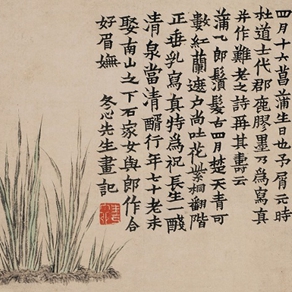 四月十六菖蒲生日也予屑元時
杜道士代郡鹿膠墨乃爲寫真
并作難老之詩再其壽云
蒲〻郎〻鬚髮古四月楚天青可
數紅蘭遮戶尚吐花紫桐翻階
正垂乳寫真特爲祝長生一醆
清泉當清醑行年七十老未
娶南山之下石家女與郎作合
好眉嫵 冬心先生畫記